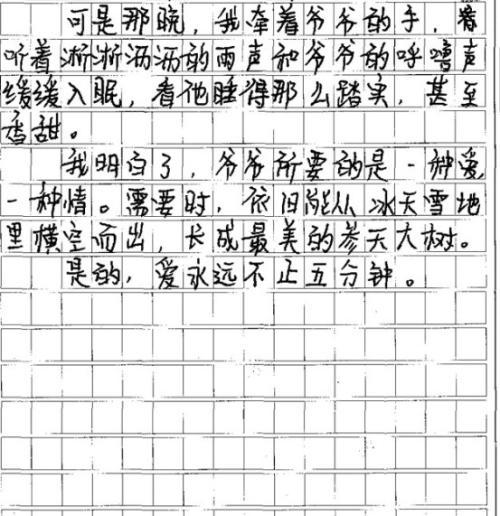 可是那晚，我牵着爷爷的手，
听着淅淅沥沥的雨声和爷爷的呼噜声
缓缓入眠，看他睡得那么踏实，甚至
香甜。
我明白了，爷爷所要的是一种爱
一种情。需要时，依旧能从冰天雪地
里横空而出，长成最美的参天大树。
是的，爱永远不止五分钟。